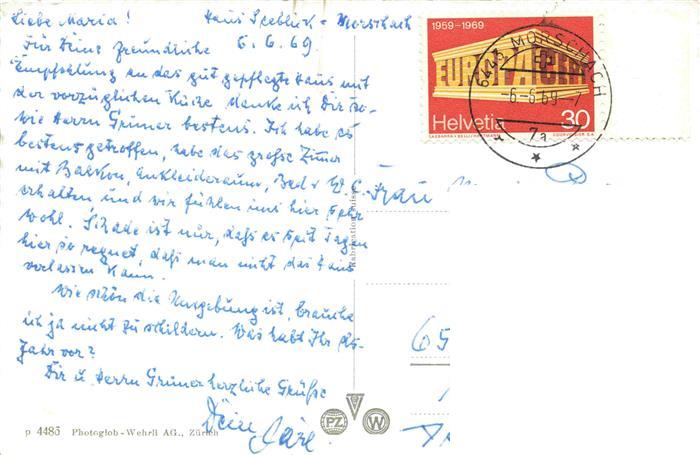 Liebe Maria! Haus Seeblick - Morschach
6.6.69
Für Deine freundliche
Empfehlung an das gut gepflegte Haus mit
der vorzüglichen Küche danke ich Dir so-
wie Herrn Grüner bestens. Ich habe es
bestens getroffen, habe das große Zimer
mit Balkon, Ankleideraum, Bad u W.C.
erhalten und wir fühlen uns hier sehr
wohl. Schade ist nur, daß es seit Tagen
hier so regnet, daß man nicht das Haus
verlassen kann.
Wie schön die Umgebung ist, brauche
ich ja nicht zu schildern. Was habt Ihr ds.
Jahr vor?
Dir u. Herrn Grüner herzliche Grüße
Deine
p 4485 Photoglob-Wehrli AG., Zürich
PZ W
Fabrication suisse
1959-1969
EUROPA CEPT
Helvetia 30
6443 MORSCHACH
-6.-6.69-7
7a
Frau
65